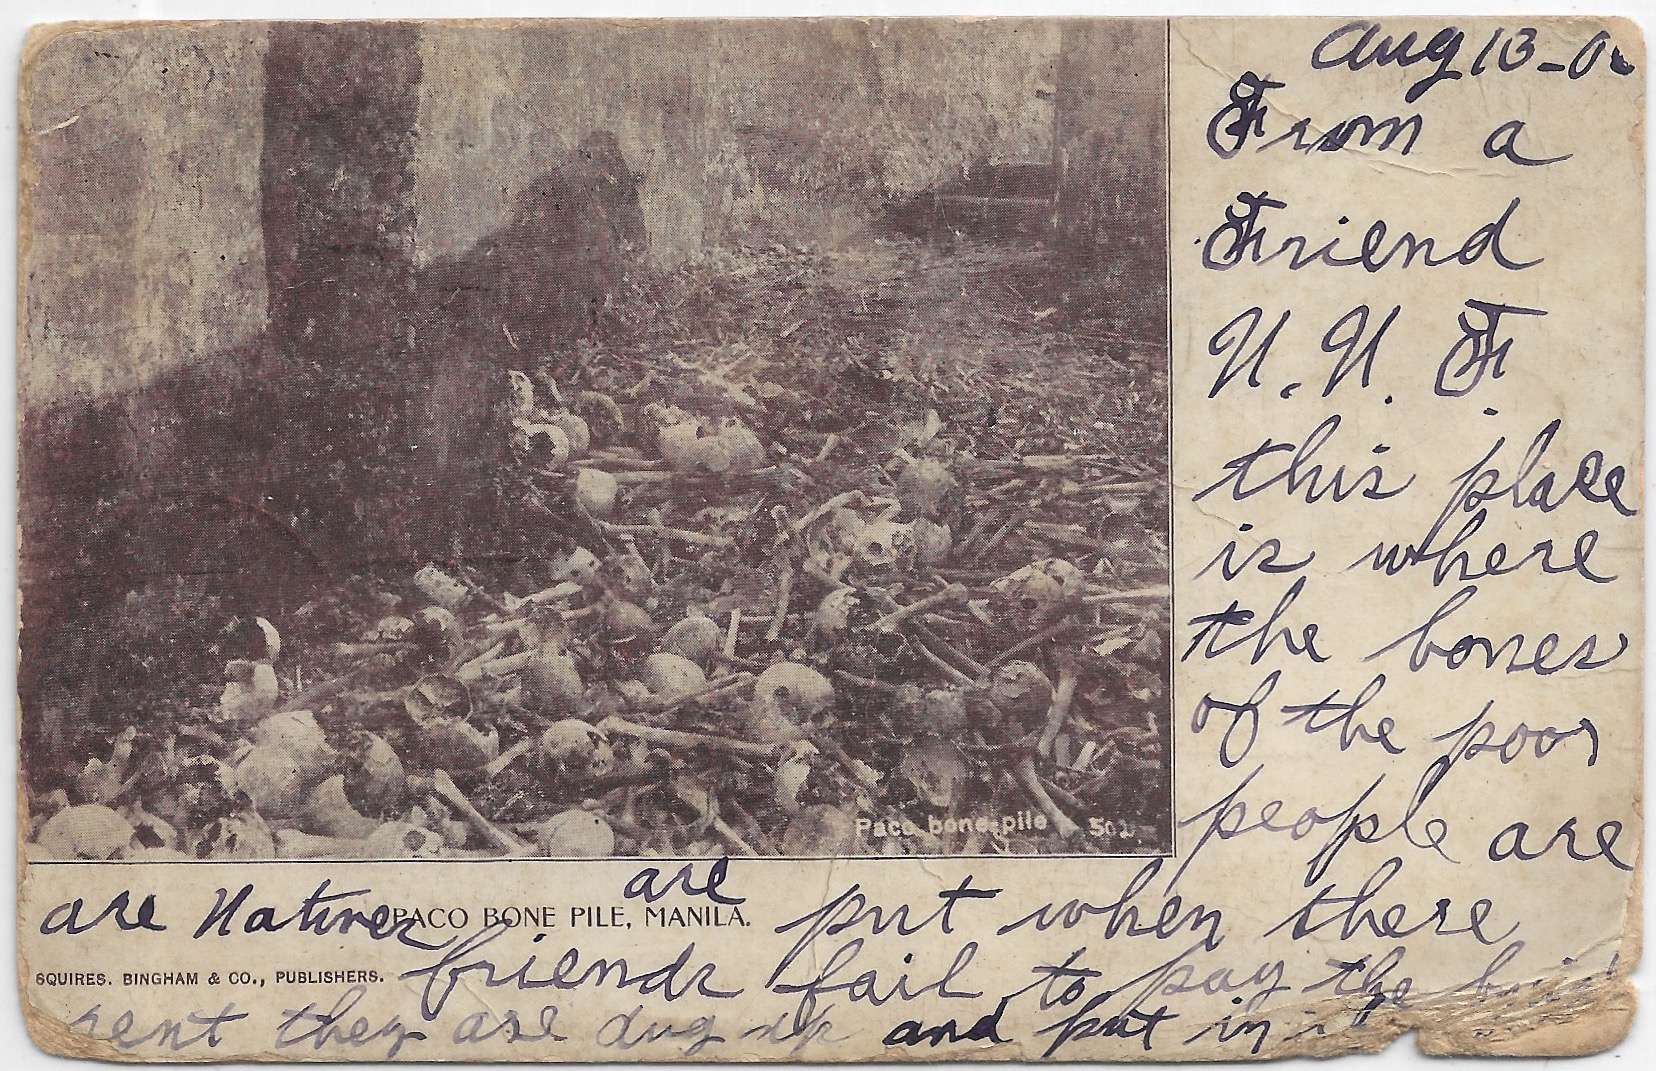 Aug 13-0
From a
Friend
N. N. F.
this place
is where
the bones
of the poor
people are
Paco bone pile 502
are Natives are put when there
PACO BONE PILE, MANILA.
friends fail to pay the
SQUIRES. BINGHAM & CO., PUBLISHERS.
rent they are dug up and put in